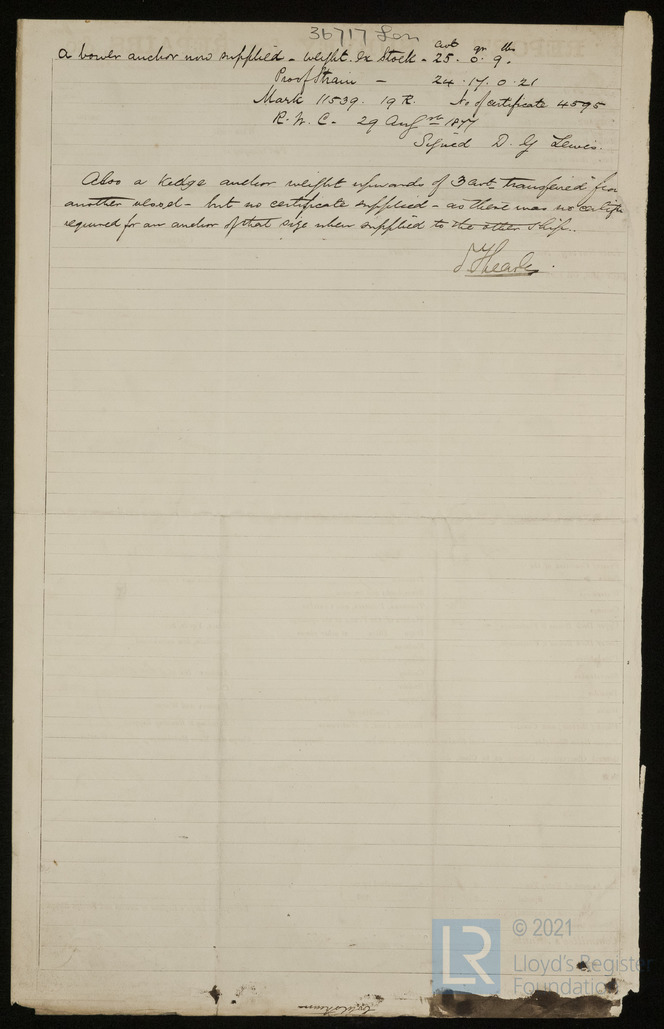 36717 Lon
cwt qr lbs
a bower anchor now supplied - weight. ex Stock - 25. 0. 9.
Proof Strain - 24. 17. 0. 21
Mark 11539. 19 R. No of certificate 4595
R. W. C. - 29 Augst 1877
Signed D. G Lewis.
Also a Kedge anchor weight upwards of 3 cwt transferred from
another vessel - but no certificate supplied - as there was no certifi
required for an anchor of that size when supplied to the other ship.
© 2021
LR
Lloyd's Register
Foundation